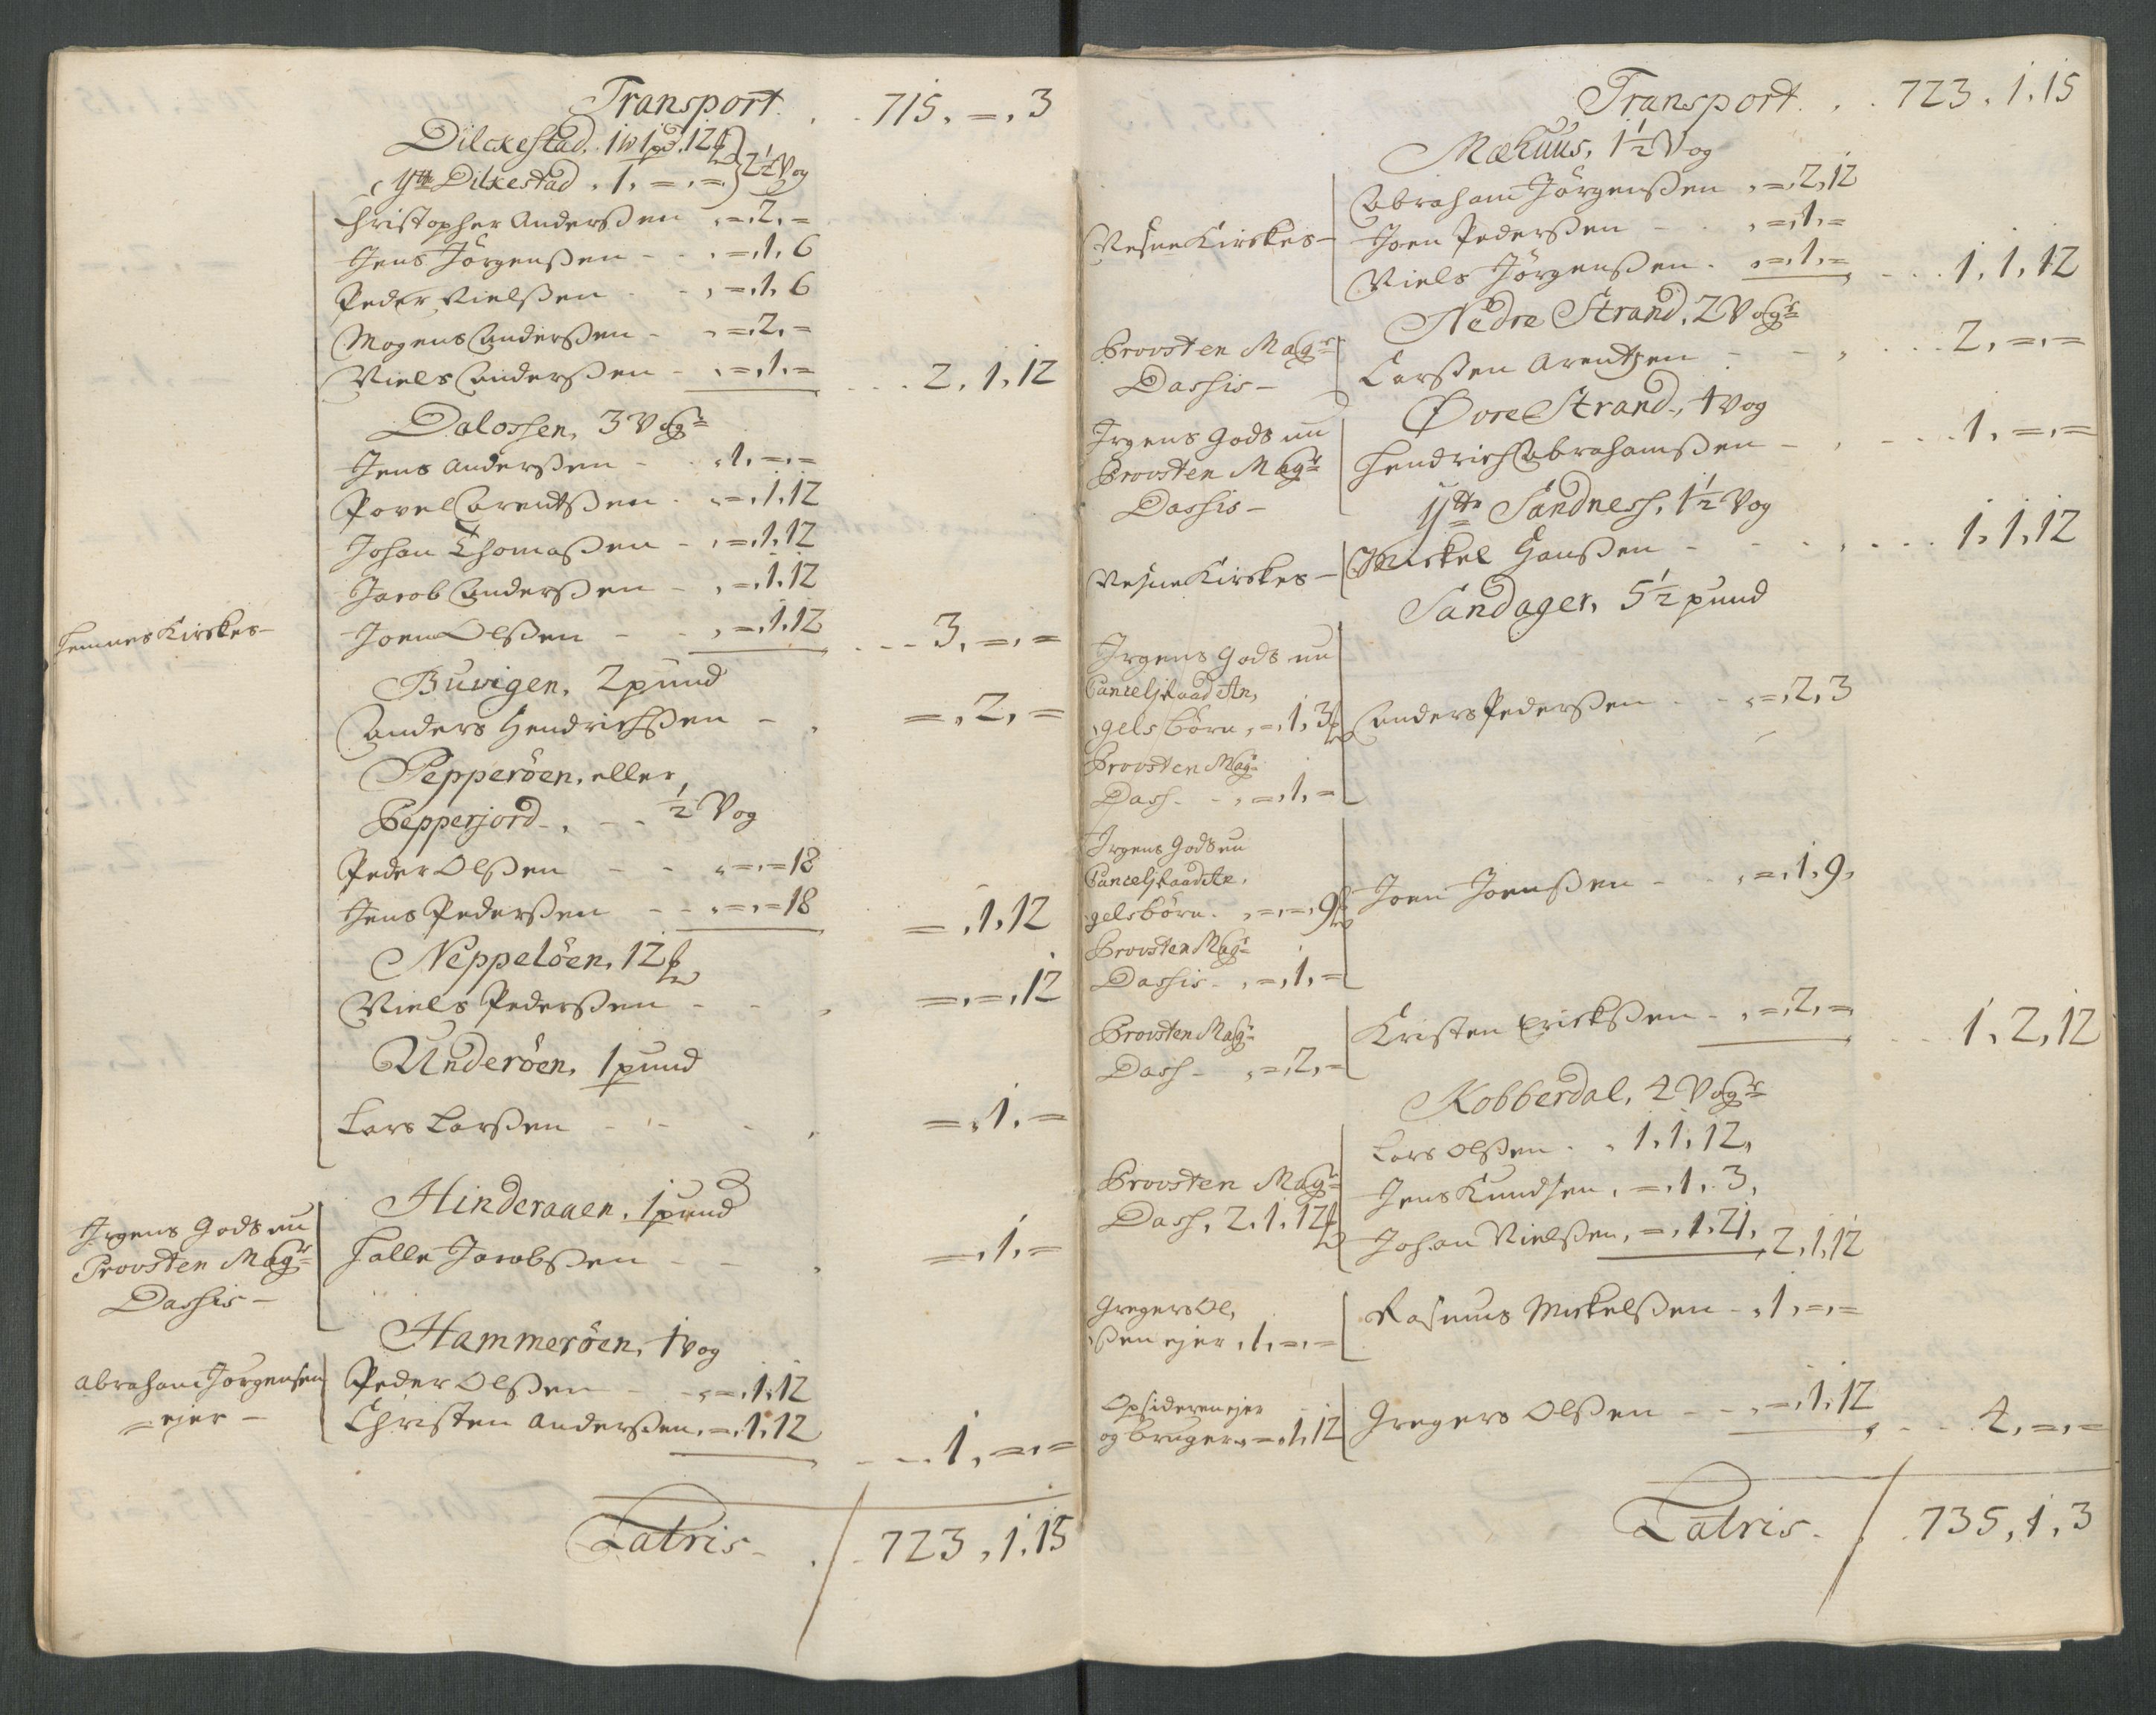 Transport. . . 715, =, 3
Dilckestad, 1 w 1 pd. 12 ℔
Ytte Dilkestad, 1, =, =. } 2½ Vog
Christopher Anderßen , =, 2, =
Jens Jörgenßen - - , =, 1, 6
Peder Nielßen - - , =, 1, 6
Mogens Anderßen - , =, 2, =
Niels Anderßen - , =, 1, = - - - 2, 1, 12
Dalossen, 3 Vogr
Jens Anderßen - , 1, =, =
Povel Arentßen - , =, 1, 12
Johan Thomaßen - , =, 1, 12
Jacob Anderßen - , =, 1, 12
Hemnes Kirckes - Joen Olßen - - , =, 1, 12 - - - 3, =, =
Buvigen, 2 pund
Anders Hendrichßen - , =, 2, =
Pepperöen, eller
Pepperjord - , - - ½ Vog
Peder Olßen - - , =, = 18
Jens Pederßen - - , =, = 18 =, 1, 12
Neppelöen, 12 ℔
Niels Pederßen - - , =, =, 12
Underöen, 1 pund
Lars Larßen - - - , =, 1, =
Hinderaaen, 1 pund
Jrgens Gods nu
Provsten Magr
Dassis -
Halle Jacobßen - - , =, 1, =
Hammeröen, 1 Vog
Abraham Jörgensen
= ejer -
Peder Olßen - - , =, 1, 12
Christen Anderßen , =, 1, 12 - - - 1, =, =
Latris - . / - 723, 1, 15
Transport . . . 723, 1, 15
Mæhuus, 1½ Vog
Abraham Jörgenßen , =, 2, 12
Nesne Kirckes - Joen Pederßen - - , =, 1, =
Niels Jörgenßen - , =, 1, = - - - 1, 1, 12
Nedre Strand, 2 Vogr
Provsten Magr
Dassis -
Larßen Arentzen - - , - - - 2, =, =
Øvre Strand, 1 Vog
Jrgens Gods nu
Provsten Magr
Dassis -
Hendrich Abrahamßen - , - - - 1, =, =
Ytte Sandness, 1½ Vog
Nesne Kirckes - Mickel Hanßen - - - , - - - 1, 1, 12
Sandager, 5½ pund
Jrgens Gods nu
Cancelj Raad An,
gels börn , =, 1, 3 ℔
Provsten Magr
Dass - - , =, 1, =
Anders Pederßen - - , =, 2, 3
Jrgens Gods nu
Cancelj Raad An,
gels börn . , =, =, 9 ℔
Provsten Magr
Dassis - , =, 1, =
Joen Joenßen - - , =, 1, 9,
Provsten Magr
Dass - , =, 2, =
Kristen Erickßen - , =, 2, = - - - 1, 2, 12
Kobberdal, 4 Vogr
Lars Olßen - , 1, 1, 12,
Provsten Magr
Dass, 2, 1, 12 ℔
Jens Knudsen, =, 1, 3,
Johan Nielßen, =, 1, 21, 2, 1, 12
Gregers Ol,
ßen ejer , 1, =, =
Rasmus Mickelßen - , 1, =, =
Opsideren ejer
og bruger , =, 1, 12
Gregers Olßen - - , =, 1, 12 , - - - 4, =, =
Latris - . / . 735, 1, 3